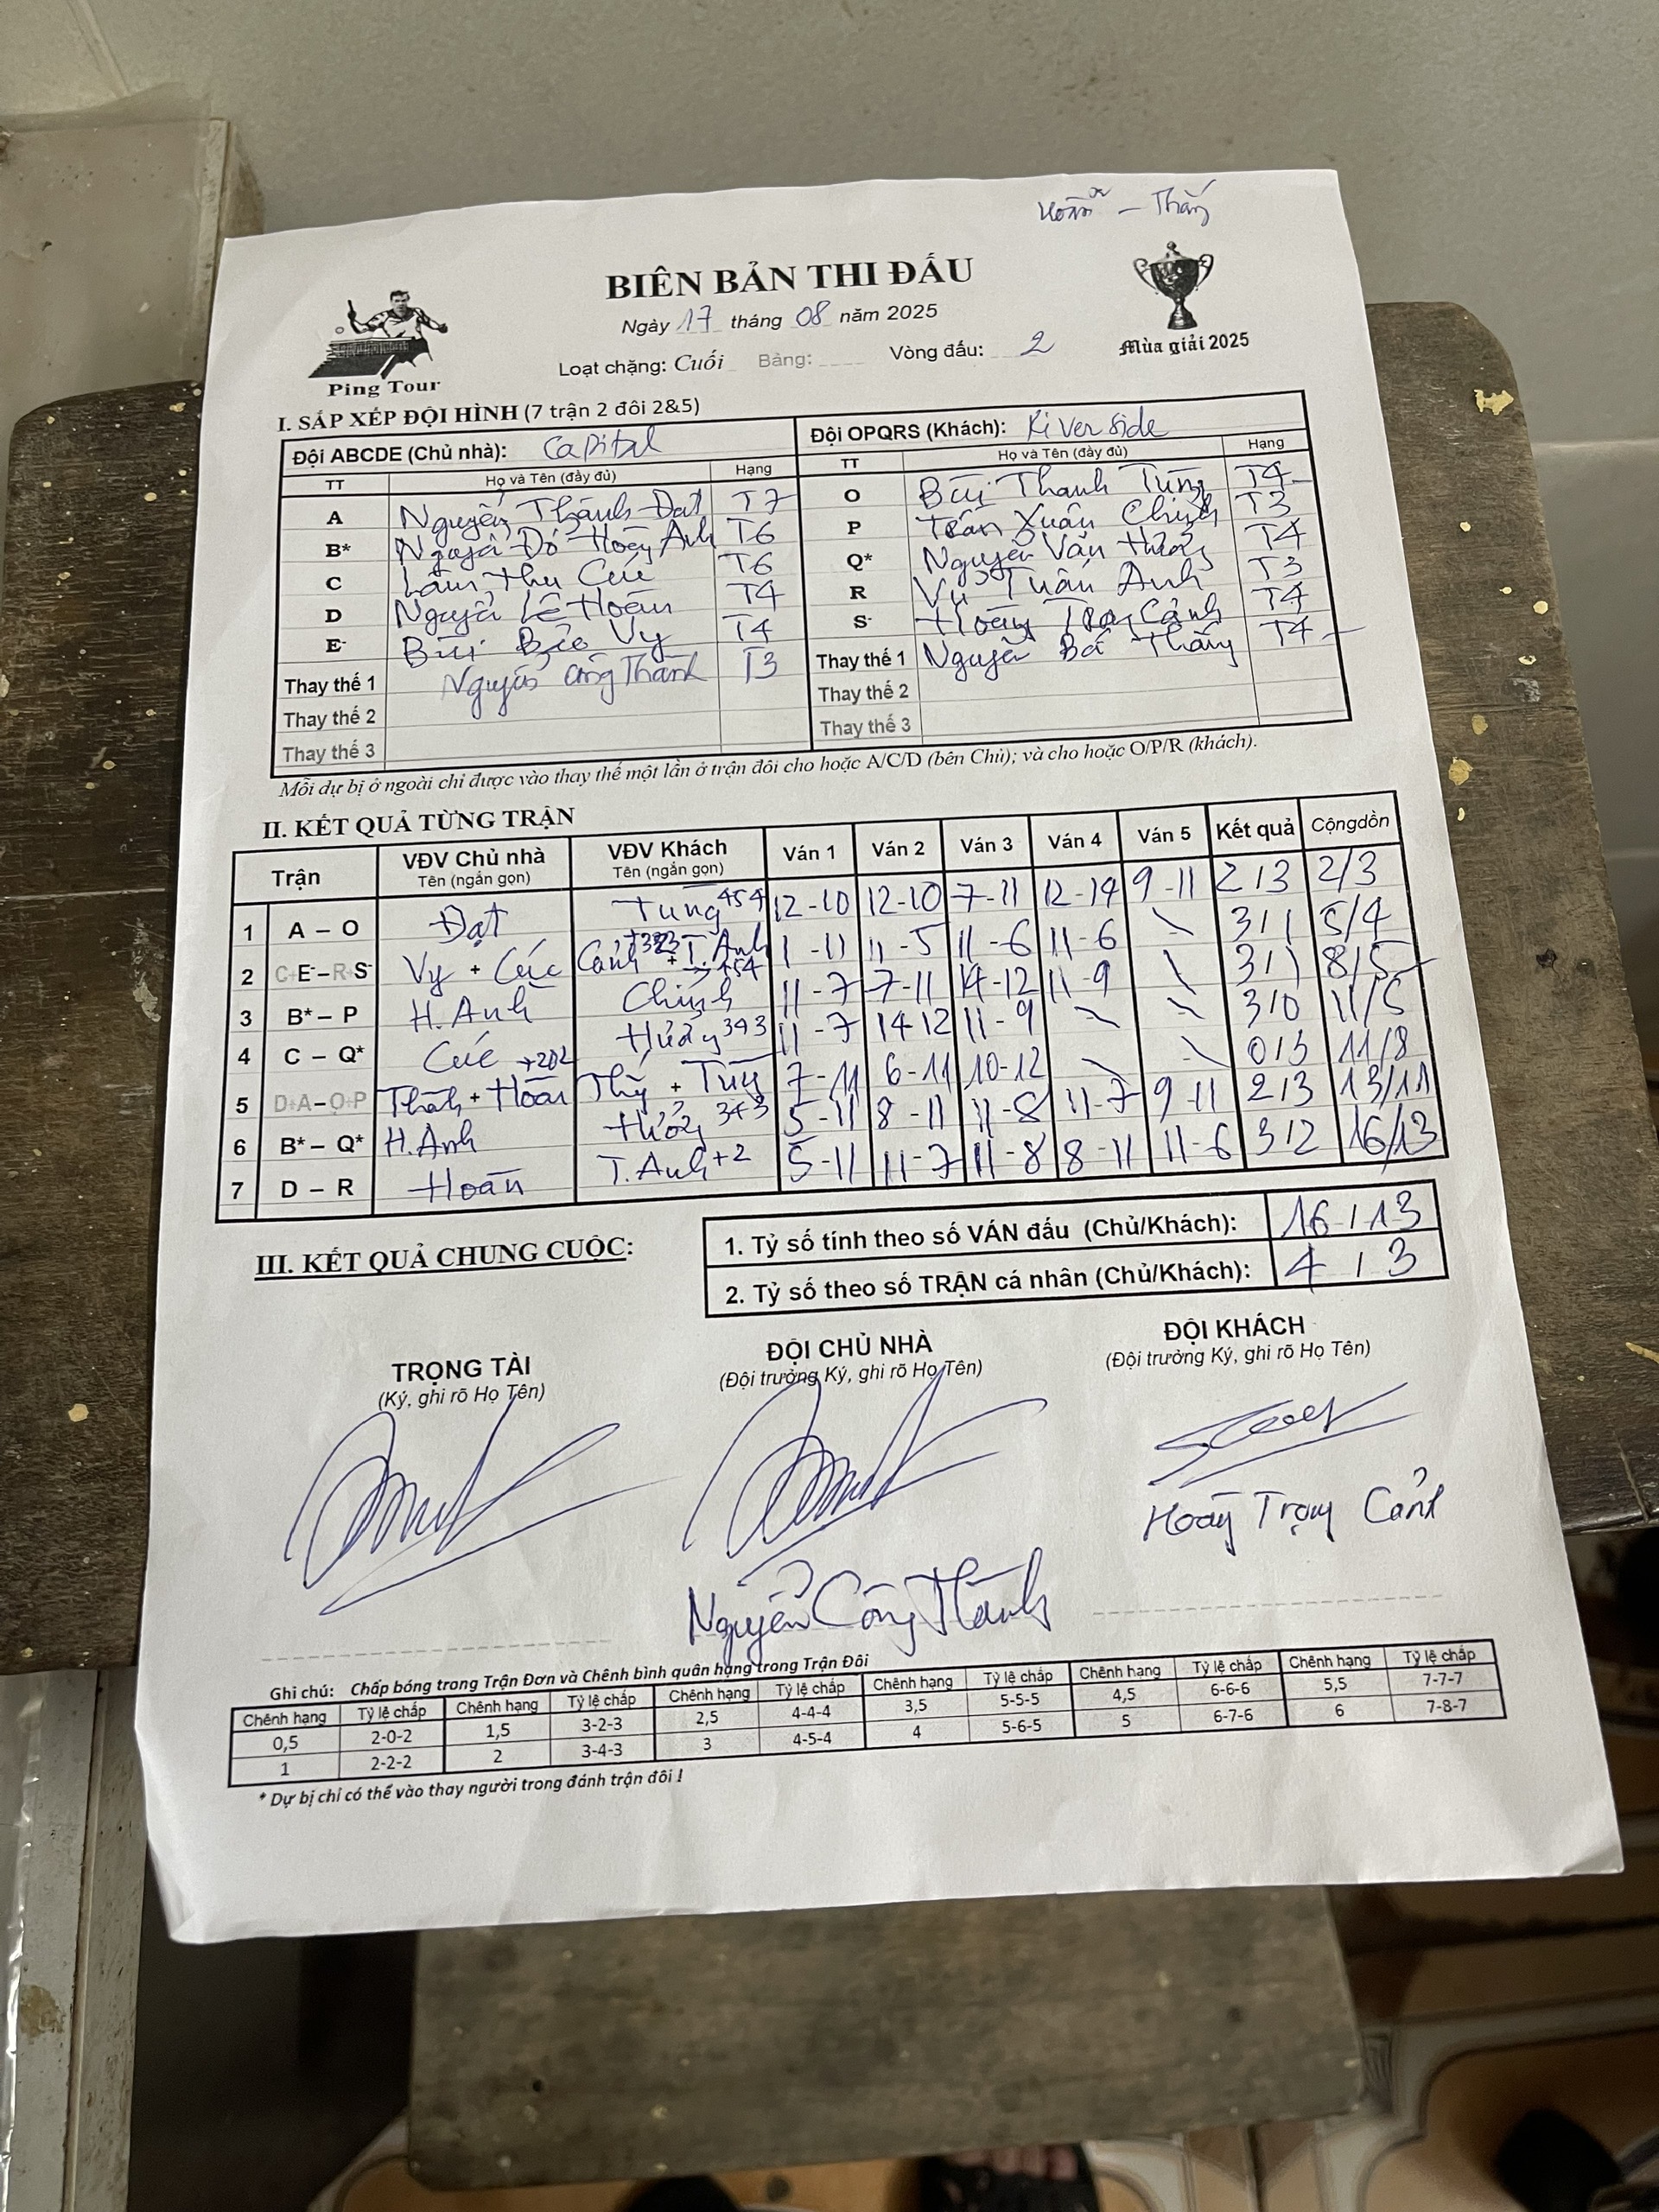 Hoàn - Thắng
BIÊN BẢN THI ĐẤU
Ngày 17 tháng 08 năm 2025
Loạt chặng: Cuối Bảng: ____ Vòng đấu: 2
Ping Tour
Mùa giải 2025
I. SẮP XẾP ĐỘI HÌNH (7 trận 2 đôi 2&5)
Đội ABCDE (Chủ nhà): Capital Đội OPQRS (Khách): Riverside
TT Họ và Tên (đầy đủ) Hạng TT Họ và Tên (đầy đủ) Hạng
A Nguyễn Thành Đạt T7 O Bùi Thanh Tùng T4
B* Nguyễn Đỗ Hoàng Anh T6 P Trần Xuân Chính T3
C Lâm Thu Cúc T6 Q* Nguyễn Văn Hưởng T4
D Nguyễn Lê Hoàn T4 R Vũ Tuấn Anh T3
E- Bùi Bảo Vy T4 S- Hoàng Trọng Cảnh T4
Thay thế 1 Nguyễn Công Thành T3 Thay thế 1 Nguyễn Bá Thắng T4
Thay thế 2 Thay thế 2
Thay thế 3 Thay thế 3
Mỗi dự bị ở ngoài chỉ được vào thay thế một lần ở trận đôi cho hoặc A/C/D (bên Chủ); và cho hoặc O/P/R (khách).
II. KẾT QUẢ TỪNG TRẬN
Trận VĐV Chủ nhà Tên (ngắn gọn) VĐV Khách Tên (ngắn gọn) Ván 1 Ván 2 Ván 3 Ván 4 Ván 5 Kết quả Cộngdồn
1 A – O Đạt Tùng 454 12-10 12-10 7-11 12-14 9-11 2/3 2/3
2 C+E-–R+S- Vy + Cúc Cảnh + T. Anh 1-11 11-5 11-6 11-6 \ 3/1 5/4
3 B* – P H. Anh Chính +454 11-7 7-11 14-12 11-9 \ 3/1 8/5
4 C – Q* Cúc Hưởng 343 11-7 14-12 11-9 \ \ 3/0 11/5
5 D+A–O+P Thành + Hoàn +202 Thắng + Tùng 7-11 6-11 10-12 \ \ 0/3 11/8
6 B* – Q* H. Anh Hưởng 343 5-11 8-11 11-8 11-7 9-11 2/3 13/11
7 D – R Hoàn T. Anh +2 5-11 11-7 11-8 8-11 11-6 3/2 16/13
III. KẾT QUẢ CHUNG CUỘC:
1. Tỷ số tính theo số VÁN đấu (Chủ/Khách): 16/13
2. Tỷ số theo số TRẬN cá nhân (Chủ/Khách): 4/3
TRỌNG TÀI ĐỘI CHỦ NHÀ ĐỘI KHÁCH
(Ký, ghi rõ Họ Tên) (Đội trưởng Ký, ghi rõ Họ Tên) (Đội trưởng Ký, ghi rõ Họ Tên)
Hoàng Trọng Cảnh
Nguyễn Công Thành
Ghi chú: Chấp bóng trong Trận Đơn và Chênh bình quân hạng trong Trận Đôi
Chênh hạng Tỷ lệ chấp Chênh hạng Tỷ lệ chấp Chênh hạng Tỷ lệ chấp Chênh hạng Tỷ lệ chấp Chênh hạng Tỷ lệ chấp Chênh hạng Tỷ lệ chấp
0,5 2-0-2 1,5 3-2-3 2,5 4-4-4 3,5 5-5-5 4,5 6-6-6 5,5 7-7-7
1 2-2-2 2 3-4-3 3 4-5-4 4 5-6-5 5 6-7-6 6 7-8-7
* Dự bị chỉ có thể vào thay người trong đánh trận đôi !